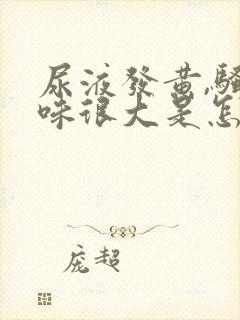 尿液發黄,騷
味很大是怎
庞超